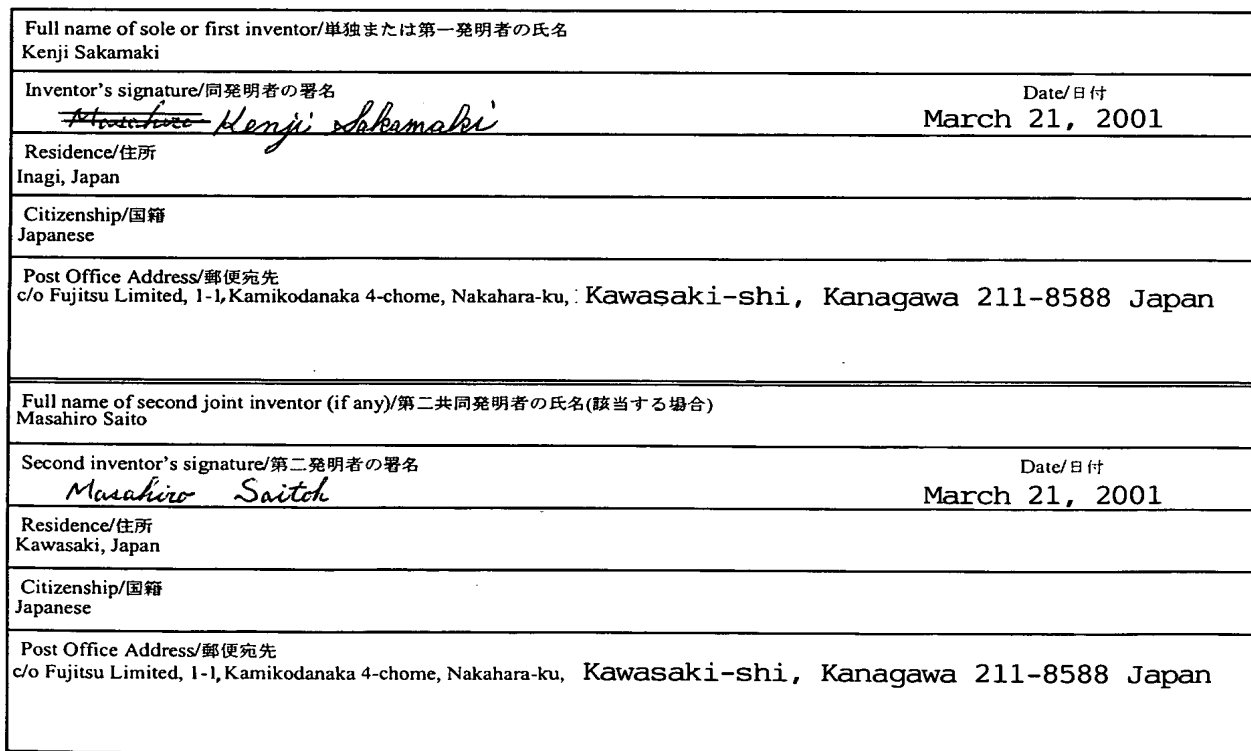 Full name of sole or first inventor/単独または第一発明者の氏名
Kenji Sakamaki
Inventor's signature/同発明者の署名
Date/日付
Masahiro Kenji Sakamaki
March 21, 2001
Residence/住所
Inagi, Japan
Citizenship/国籍
Japanese
Post Office Address/郵便宛先
c/o Fujitsu Limited, 1-1, Kamikodanaka 4-chome, Nakahara-ku, Kawasaki-shi, Kanagawa 211-8588 Japan
Full name of second joint inventor (if any)/第二共同発明者の氏名(該当する場合)
Masahiro Saito
Second inventor's signature/第二発明者の署名
Date/日付
Masahiro Saitoh
March 21, 2001
Residence/住所
Kawasaki, Japan
Citizenship/国籍
Japanese
Post Office Address/郵便宛先
c/o Fujitsu Limited, 1-1, Kamikodanaka 4-chome, Nakahara-ku, Kawasaki-shi, Kanagawa 211-8588 Japan